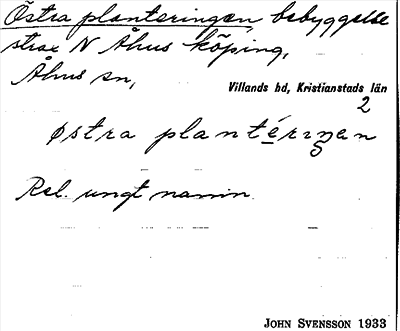 Östra planteringen bebyggelse
strax N Åhus köping,
Åhus sn,
Villands hd, Kristianstads län
2
østra plantériŋen
Rel. ungt namn.
JOHN SVENSSON 1933